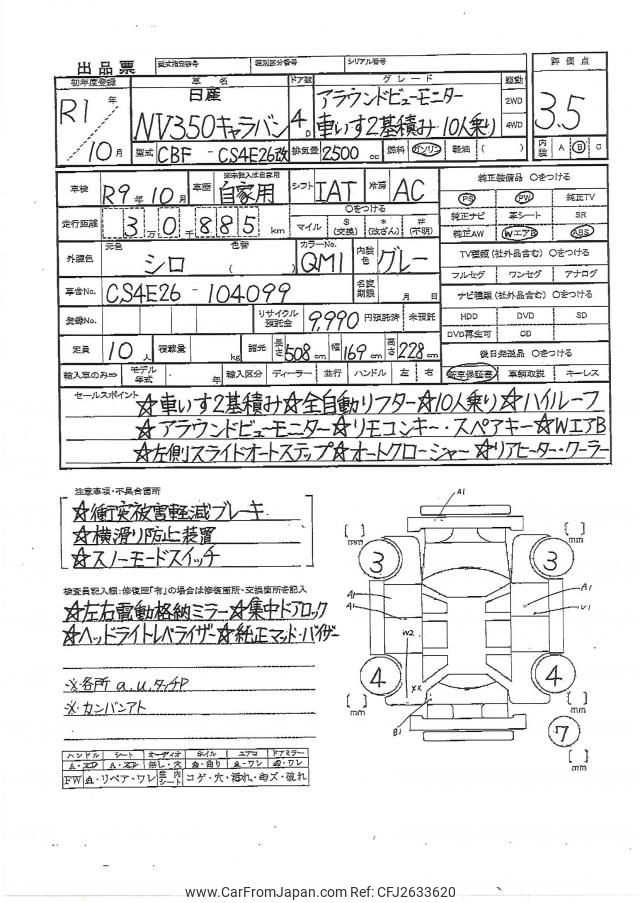 出品票 型式指定番号 類別区分番号 シリアル番号 評価点
初年度登録 車名 ドア数 グレード 駆動
R1年 10月 日産 NV350キャラバン 4D アラウンドビューモニター 2WD 3.5
車いす2基積み 10人乗り 4WD
型式 CBF - CS4E26改 排気量 2500cc 燃料 ガソリン 軽油 ( ) 内装 A B C
車検 R9年10月 車歴 自家用 シフト IAT 冷房 AC 純正装備品 〇をつける
PS PW 純正TV
走行距離 3万0千885km 〇をつける マイル $(交換) *(改ざん) #(不明) 純正ナビ 革シート SR
純正AW WエアB ABS
外装色 元色 シロ 色替 ( ) カラーNo. QM1 内装色 グレー TV種類(社外品含む)〇をつける
フルセグ ワンセグ アナログ
車台No. CS4E26 - 104099 名変期限 月 日 ナビ種類(社外品含む)〇をつける
登録No. リサイクル預託金 9,990円預託済 未預託 HDD DVD SD
DVD再生可 CD
定員 10人 積載量 kg 諸元 長さ508cm 幅169cm 高さ228cm 後日発送品 〇をつける
輸入車のみ⇒ モデル年式 年 輸入区分 ディーラー 並行 ハンドル 左 右 新車保証書 車輌取説 キーレス
セールスポイント ☆車いす2基積み☆全自動リフター☆10人乗り☆ハイルーフ
☆アラウンドビューモニター☆リモコンキー・スペアキー☆WエアB
☆左側スライドオートステップ☆オートクロージャー☆リアヒーター・クーラー
注意事項・不具合箇所
☆衝突被害軽減ブレーキ
☆横滑り防止装置
☆スノーモードスイッチ
検査員記入欄:修復歴「有」の場合は修復箇所・交換箇所を記入
☆左右電動格納ミラー☆集中ドアロック
☆ヘッドライトレベライザー☆純正マッド・バイザー
※各所 a,u,タッチP
※カンバンアト
ハンドル シート オーディオ ホイル エアロ ドアミラー
A・スレ A・スレ 無し・穴 曲り A・ワレ A・ワレ
FW A・リペア・ワレ 室内シート コゲ・穴・汚れ・キズ・破れ
A1
[ ] mm [ ] mm
3 3
A1 A1
A1 U1
W2
4 4
XX
[ ] mm [ ] mm
B1
7
[ ] mm
www.CarFromJapan.com Ref: CFJ2633620